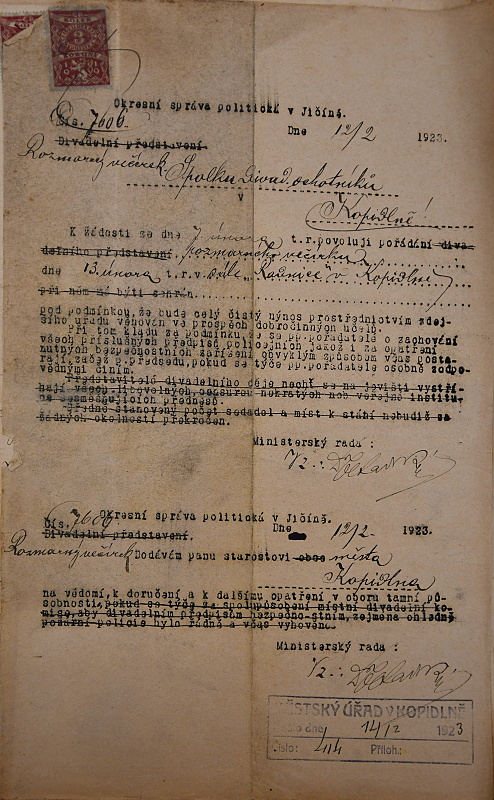 KOLEK
3
KORUNA
Okresní správa politická v Jičíně.
Čís. 7606.
Dne 12/2 1923.
Divadelní představení.
Rozmarný večírek
Spolku divad. ochotníků
v
Kopidlně!
K žádosti ze dne 7. února t.r.povoluji pořádání diva-
delního představení, rozmarného večírku
dne 13. února t.r.v sále „Radnice" v Kopidlně
při něm má býti sehrán.
pod podmínkou, že bude celý čistý výnos prostřednictvím zdej-
šího úřadu věnován ve prospěch dobročinných účelů.
Při tom kladu za podmínku, že se pp.pořadatelé o zachování
všech příslušných předpisů policejních jakož i za opatření
nutných bezpečnostních zařízení obvyklým způsobem včas posta-
rají, začež p.předseda, pokud se týče pp.pořadatelé osobně zodpo-
vědnými činím.
Představitelé divadelního děje nechť se na jevišti vystří-
hají všech libovolných, censurou nekrytých neb veřejné institu-
ce zesměšňujících přednesů.
Úředně stanovený počet sedadel a míst k stání nebudiž za
žádných okolností překročen.
Ministerský rada :
Vz.:
Okresní správa politická v Jičíně.
Čís. 7606
Dne 12/2. 1923.
Divadelní představení.
Rozmarný večírek
Dodávám panu starostovi obce města
Kopidlna
na vědomí, k doručení a k dalšímu opatření v oboru tamní pů-
sobnosti, pokud se týče za spolupůsobení místní divadelní ko-
mise, aby divadelním předpisům bezpečnostním, zejména ohledně
požární policie bylo řádně a včas vyhověno.
Ministerský rada :
Vz.:
MĚSTSKÝ ÚŘAD V KOPIDLNĚ
dne 14/2 1923
Číslo: 44 Příloh: